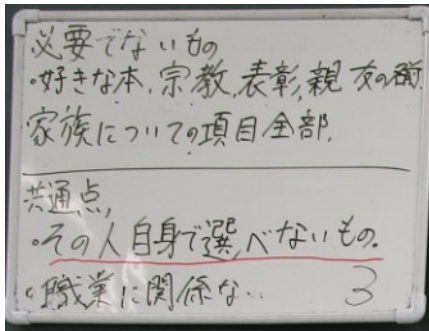 必要でないもの
・好きな本,宗教,表彰,親友の名前
家族についての項目全部.
共通点,
・その人自身で選べないもの.
・職業に関係ない
3